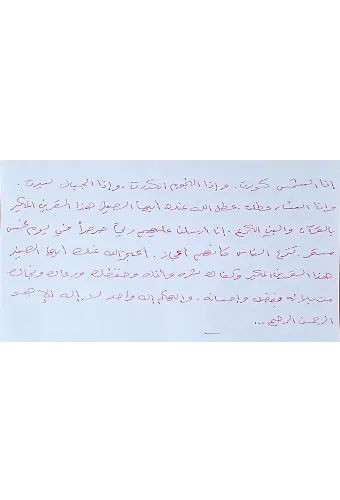 إذا الشمس كورت. وإذا النجوم انكدرت. وإذا الجبال سيرت.
وإذا العشار عطلت. عطل الله عنك أيها الصغير هذا القرين المكير
بالقرآن والنبي الكريم. إنا أرسلنا عليهم ريحا صرصرا في يوم نحس
مستمر. تنزع الناس كأنهم أعجاز. أعجز الله عنك أيها الصغير
هذا القرين المكير وكفاك شره وأذاه وحفظك ورعاك ونجاك
من بلائه بفضله وإحسانه. وإلهكم إله واحد لا إله إلا هو
الرحمن الرحيم...